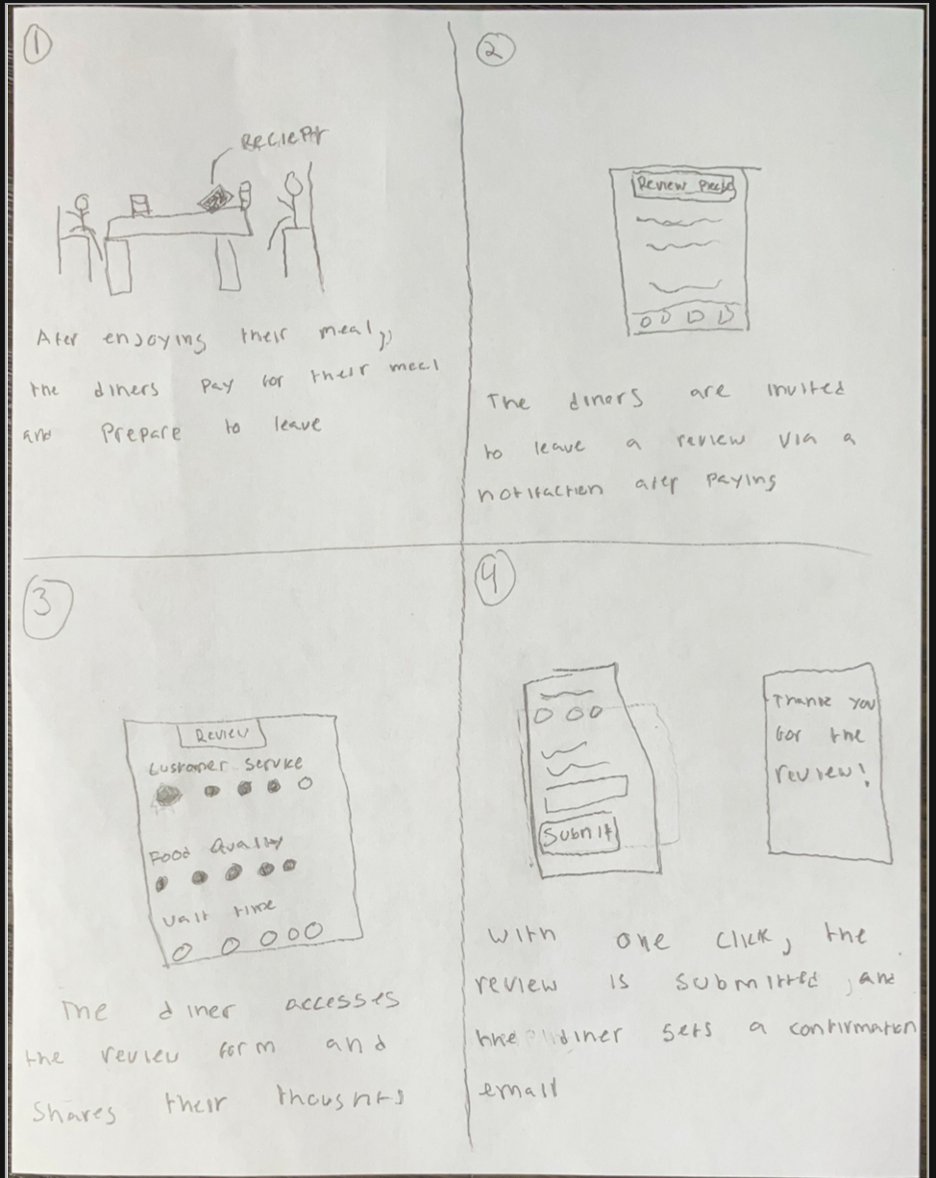 1
RECIEPT
Ater enjoying their meal,
the diners pay for their meal
and prepare to leave
2
Review
The diners are invited
to leave a review via a
after paying
3
Review
Customer Service
Food Quality
Wait time
The diner accesses
the review form and
shares their thoughts
4
Submit
Thank you
for the
review!
With one click, the
review is submitted, and
the diner gets a confirmation
email